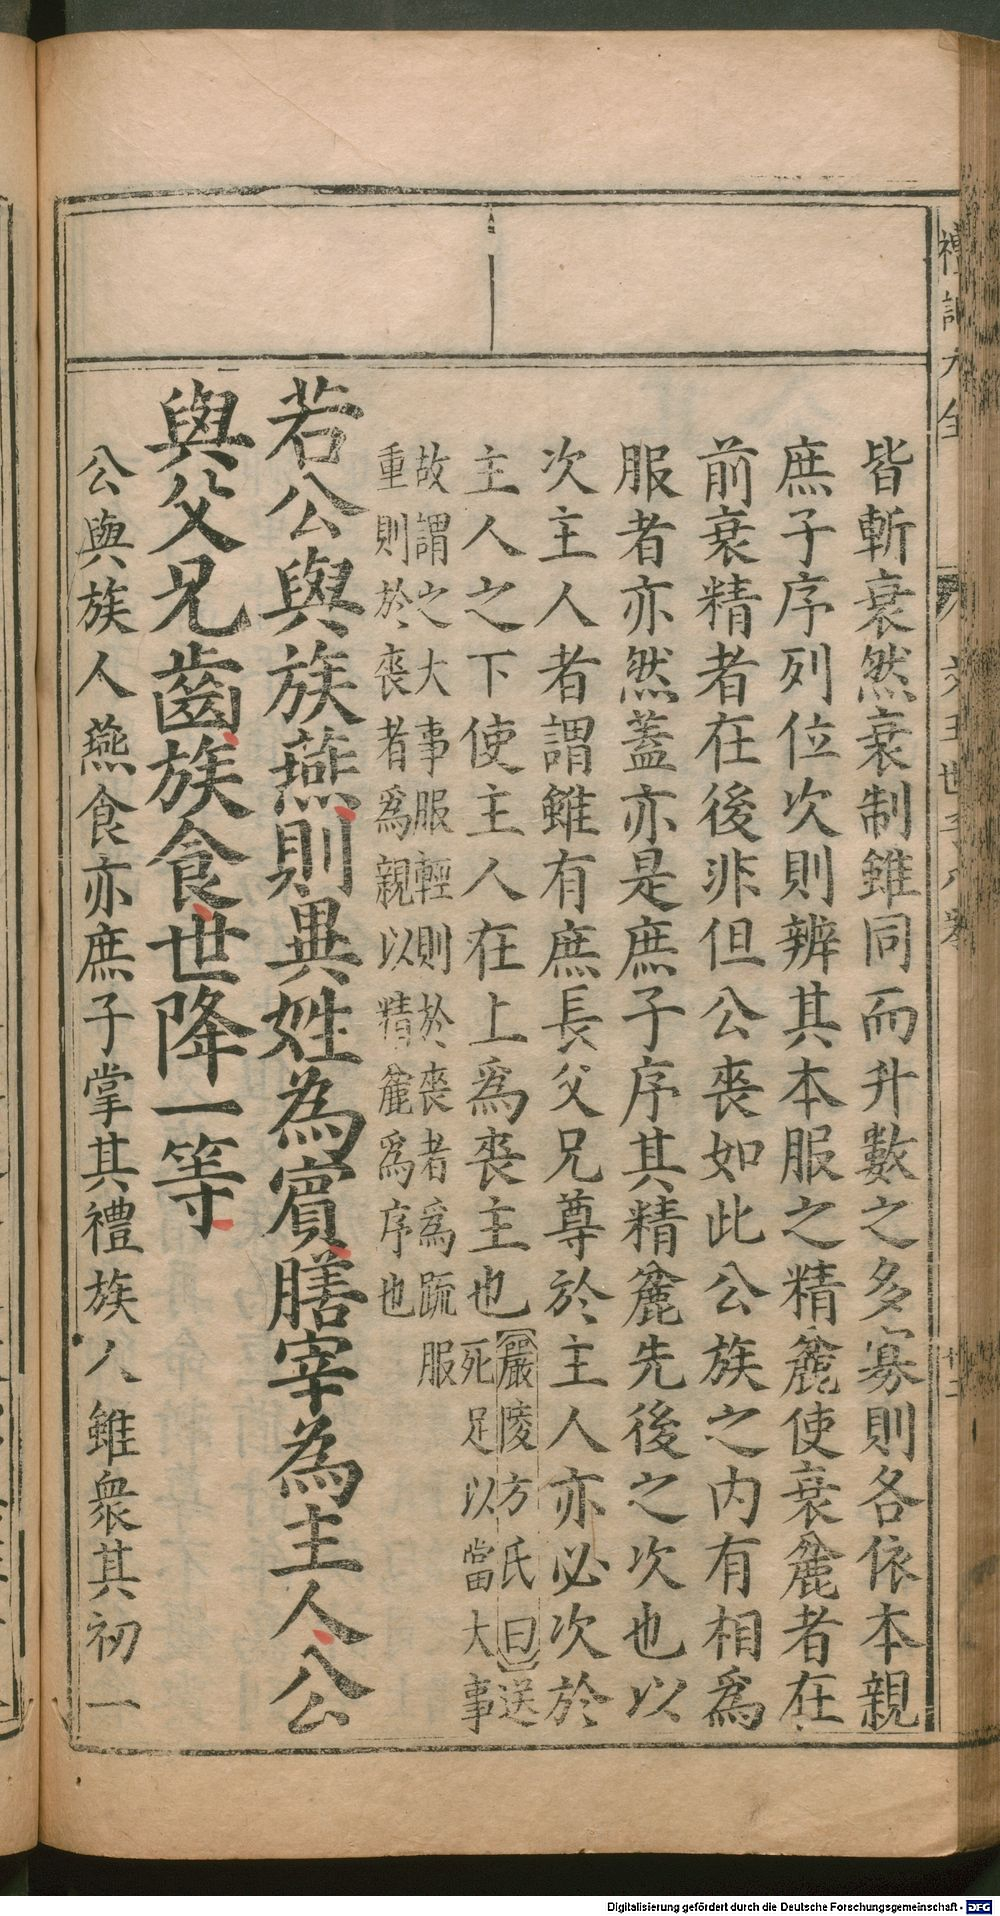 皆斬衰然衰制雖同而升數之多寡則各依本親
庶子序列位次則辨其本服之精麄使衰麄者在
前衰精者在後非但公喪如此公族之內有相爲
服者亦然蓋亦是庶子序其精麄先後之次也以
次主人者謂雖有庶長父兄尊於主人亦必次於
主人之下使主人在上爲喪主也嚴陵方氏曰送
死足以當大事
故謂之大事服輕則於喪者爲䟽服
重則於喪者爲親以精麄爲序也
若公與族燕則異姓為賓膳宰為主人公
與父兄齒族食世降一等
公與族人燕食亦庶子掌其禮族人雖衆其初一
Digitalisierung gefördert durch die Deutsche Forschungsgemeinschaft - DFG